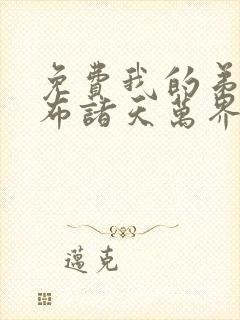 免費我的弟
布諸天萬界
邁克